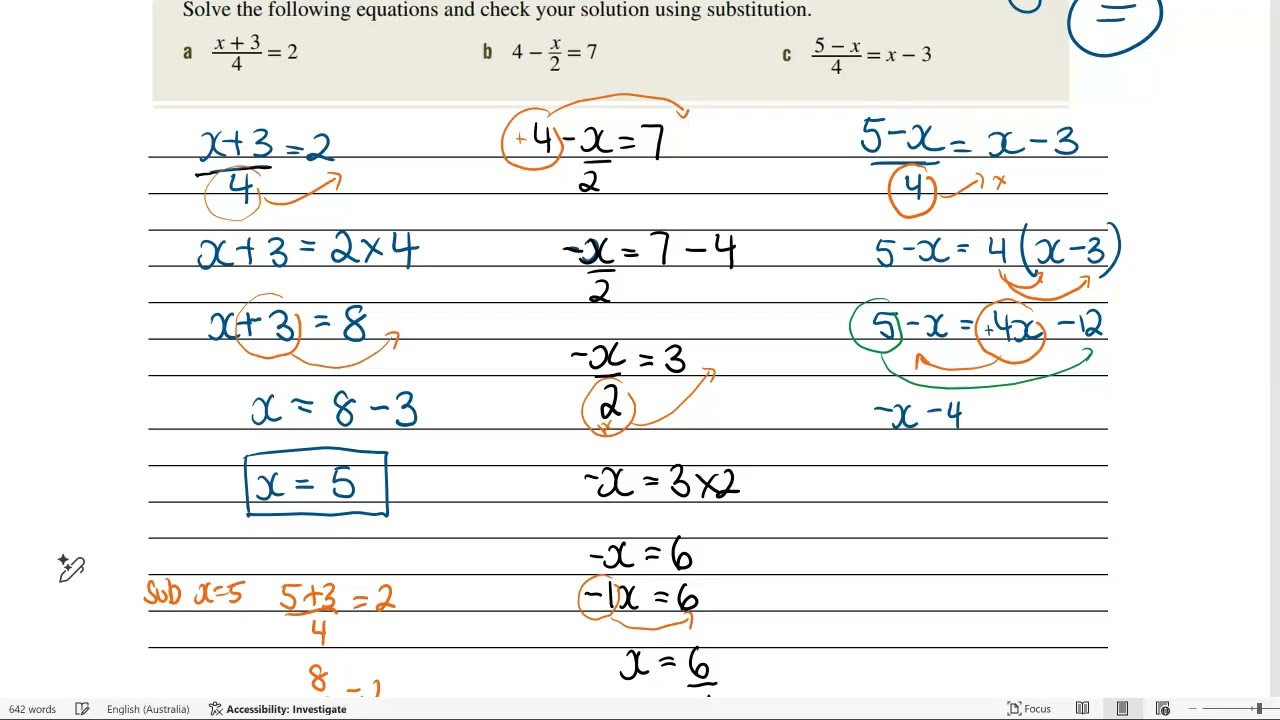 Solve the following equations and check your solution using substitution.
=
a (x + 3)/4 = 2
b 4 − x/2 = 7
c (5 − x)/4 = x − 3
x+3 = 2
4
x+3 = 2×4
x+3 = 8
x = 8 - 3
x = 5
Sub x=5 5+3 = 2
4
8
+4 - x = 7
2
-x = 7 - 4
2
-x = 3
2
-x = 3×2
-x = 6
-1x = 6
x = 6
5-x = x - 3
4 ×
5-x = 4(x-3)
5-x = +4x -12
-x - 4
642 words English (Australia) Accessibility: Investigate Focus